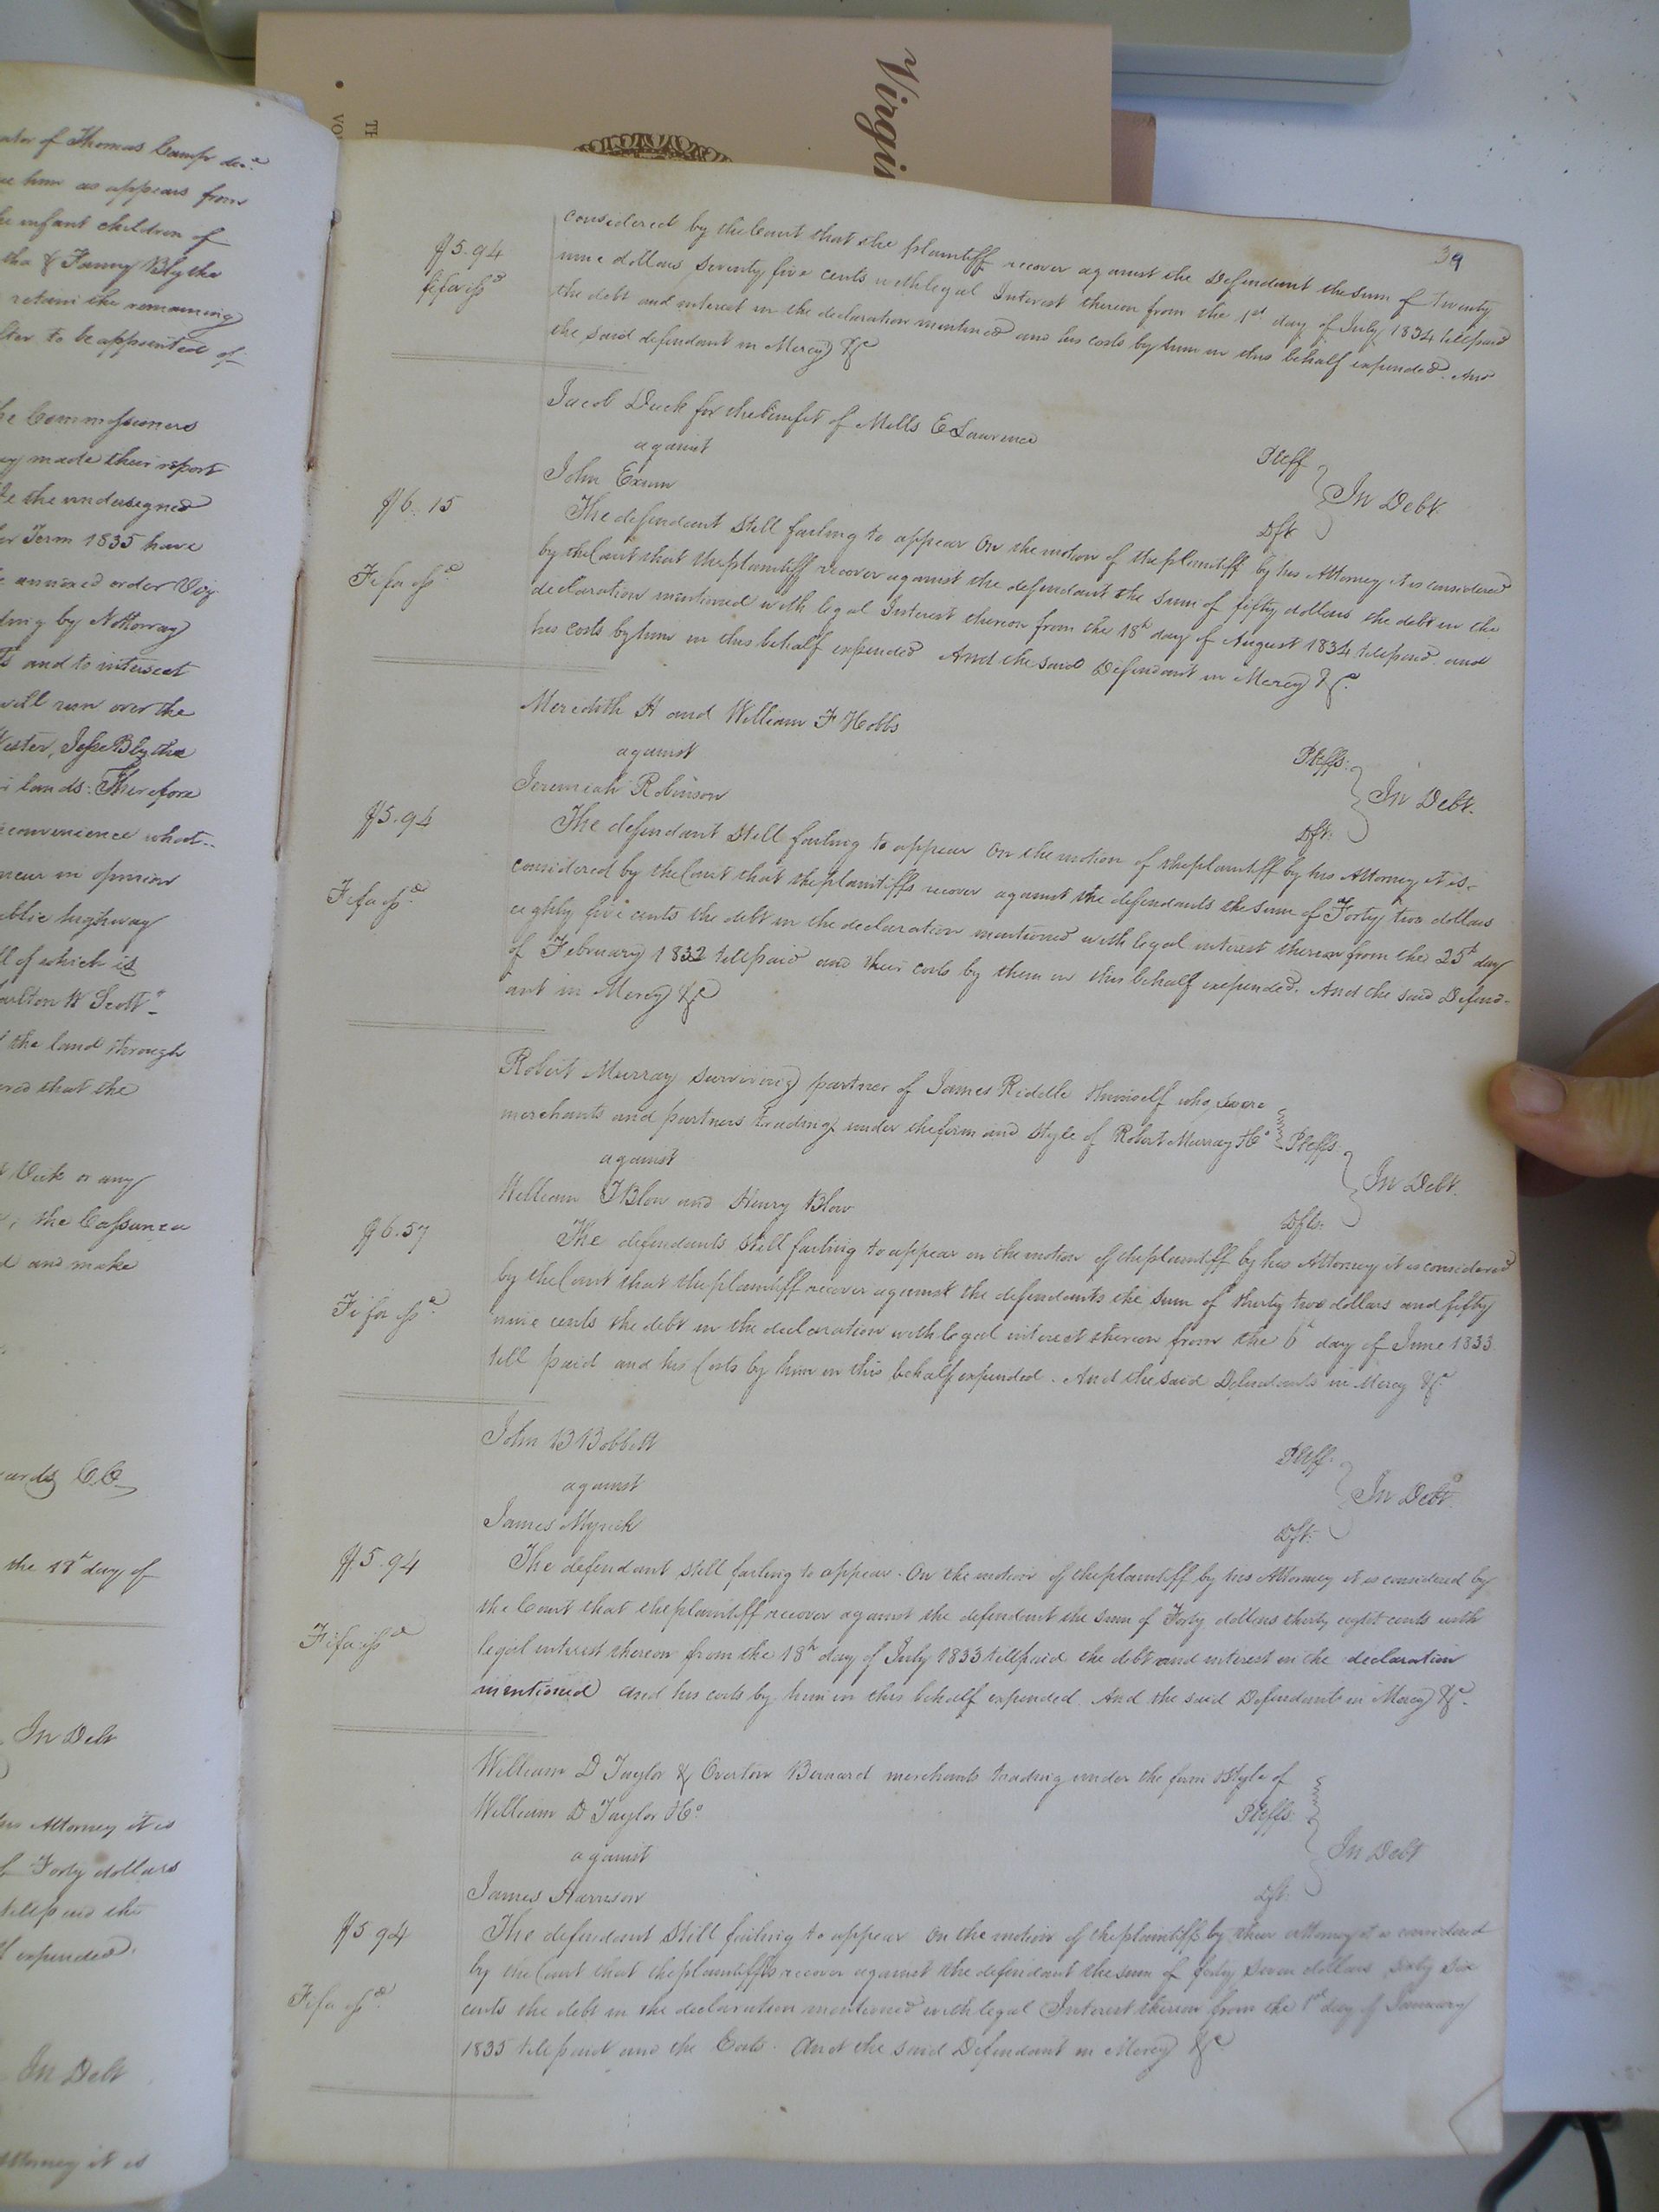 Virgi
TH
VO
ator of Thomas Camp dec.d
him as appears from
infant children of
tha & Fanny Blythe
retain the remaining
to be appointed of
Commissioners
made their report
the undersigned
Term 1835 have
annexed order Viz
by Nottoway
and to intersect
will run over the
Jesse Blythe
lands: Therefore
convenience what-
in opinion
public highway
of which is
Carlton W Scott
the land through
that the
or any
the
and make
C.C.
the 18th day of
In Debt
his Attorney it is
Forty dollars
till paid the
expended.
In Debt
Attorney it is
39
considered by the Court that the plaintiff recover against the Defendant the sum of twenty
$5.94
nine dollars seventy five cents with legal Interest thereon from the 1st day of July 1834 till paid
fifa issd
the debt and interest in the declaration mentioned and his costs by him in this behalf expended. And
the said defendant in Mercy &c
Jacob Duck for the benefit of Mills E Lawrence
Pltff
against
In Debt
John Exum
Dft
$6.15
The defendant still failing to appear On the motion of the plaintiff by his Attorney it is considered
by the Court that the plaintiff recover against the defendant the sum of fifty dollars the debt in the
Fifa issd
declaration mentioned with legal Interest thereon from the 18th day of August 1834 till paid and
his costs by him in this behalf expended And the said Defendant in Mercy &c.
Meredith H and William F Hobbs
Pltffs.
against
In Debt.
Jeremiah Robinson
Dft.
$5.94
The defendant still failing to appear On the motion of the plaintiff by his Attorney it is
considered by the Court that the plaintiffs recover against the defendants the sum of Forty two dollars
Fifa issd
eighty five cents the debt in the declaration mentioned with legal interest thereon from the 25th day
of February 1832 till paid and their costs by them in this behalf expended. And the said Defend-
ant in Mercy &c
Robert Murray surviving partner of James Riddle & himself who were
merchants and partners trading under the firm and style of Robert Murray & Co Pltffs
against
In Debt.
William J Blow and Henry Blow
Dfts.
$6.57
The defendants still failing to appear on the motion of the plaintiff by his Attorney it is considered
by the Court that the plaintiff recover against the defendants the sum of thirty two dollars and fifty
Fifa issd.
nine cents the debt in the declaration with legal interest thereon from the 6th day of June 1833
till paid and his Costs by him in this behalf expended. And the said Defendants in Mercy &c.
John B Bobbett
Pltff.
against
In Debt.
James Myrick
Dft.
$5.94
The defendant still failing to appear. On the motion of the plaintiff by his Attorney it is considered by
the Court that the plaintiff recover against the defendant the sum of Forty dollars thirty eight cents with
Fifa issd
legal interest thereon from the 18th day of July 1833 till paid the debt and interest in the declaration
mentioned and his costs by him in this behalf expended. And the said Defendant in Mercy &c.
William D Taylor & Overton Bernard merchants trading under the firm & style of
William D Taylor & Co
Pltffs.
against
In Debt
James Harrison
Dft.
$5 94
The defendant still failing to appear On the motion of the plaintiffs by their attorney it is considered
by the Court that the plaintiffs recover against the defendant the sum of forty seven dollars sixty six
Fifa issd.
cents the debt in the declaration mentioned with legal Interest thereon from the 1st day of January
1835 till paid and the Costs. And the said Defendant in Mercy &c